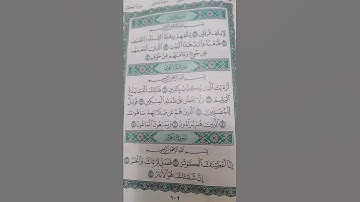 سُورَةُ قُرَيْشٍ
بِسْمِ ٱللَّهِ ٱلرَّحْمَٰنِ ٱلرَّحِيمِ
لِإِيلَٰفِ قُرَيْشٍ ۝١ إِۦلَٰفِهِمْ رِحْلَةَ ٱلشِّتَآءِ وَٱلصَّيْفِ
۝٢ فَلْيَعْبُدُوا۟ رَبَّ هَٰذَا ٱلْبَيْتِ ۝٣ ٱلَّذِىٓ أَطْعَمَهُم
مِّن جُوعٍ وَءَامَنَهُم مِّنْ خَوْفٍۭ ۝٤
سُورَةُ المَاعُونِ
بِسْمِ ٱللَّهِ ٱلرَّحْمَٰنِ ٱلرَّحِيمِ
أَرَءَيْتَ ٱلَّذِى يُكَذِّبُ بِٱلدِّينِ ۝١ فَذَٰلِكَ ٱلَّذِى يَدُعُّ
ٱلْيَتِيمَ ۝٢ وَلَا يَحُضُّ عَلَىٰ طَعَامِ ٱلْمِسْكِينِ ۝٣ فَوَيْلٌ
لِّلْمُصَلِّينَ ۝٤ ٱلَّذِينَ هُمْ عَن صَلَاتِهِمْ سَاهُونَ
۝٥ ٱلَّذِينَ هُمْ يُرَآءُونَ ۝٦ وَيَمْنَعُونَ ٱلْمَاعُونَ ۝٧
سُورَةُ الكَوْثَرِ
بِسْمِ ٱللَّهِ ٱلرَّحْمَٰنِ ٱلرَّحِيمِ
إِنَّآ أَعْطَيْنَٰكَ ٱلْكَوْثَرَ ۝١ فَصَلِّ لِرَبِّكَ وَٱنْحَرْ ۝٢
إِنَّ شَانِئَكَ هُوَ ٱلْأَبْتَرُ ۝٣
٦٠٢